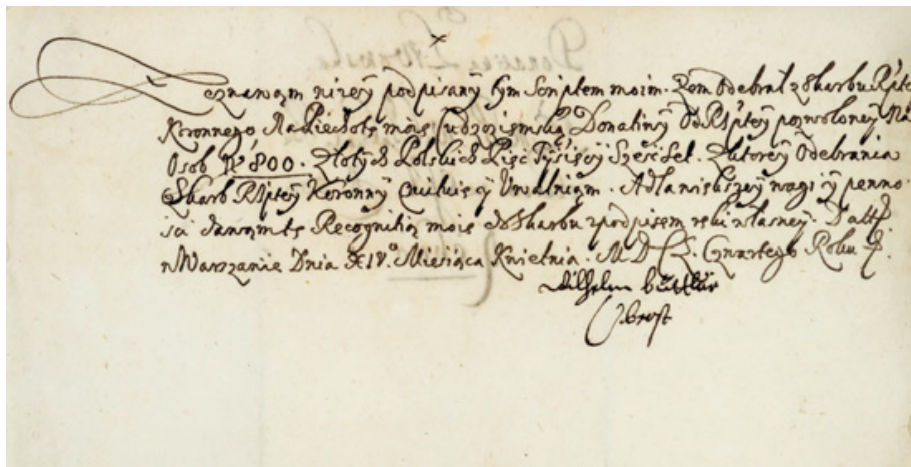 Zeznawam niżey podpisany tym scriptem moim. Zem Odebrał z Skarbu Rptey
Koronnego Na Piechotę moię Cudzoziemską Donatiwy Od Rptey pozwoloney Na
Osob No 800. Złotych Polskich Pięć Tysięcy Sześć Set. Z ktorey Odebrania
Skarb Rptey Koronny Quituię y Uwalniam. A dla większey wagi y pewno-
sci dawam tę Recognitią moię do Skarbu z podpisem ręki własney. Datt
w Warszawie Dnia Miesiąca Kwietnia. Czwartego Roku
Wilhelm Buttler
Obrest